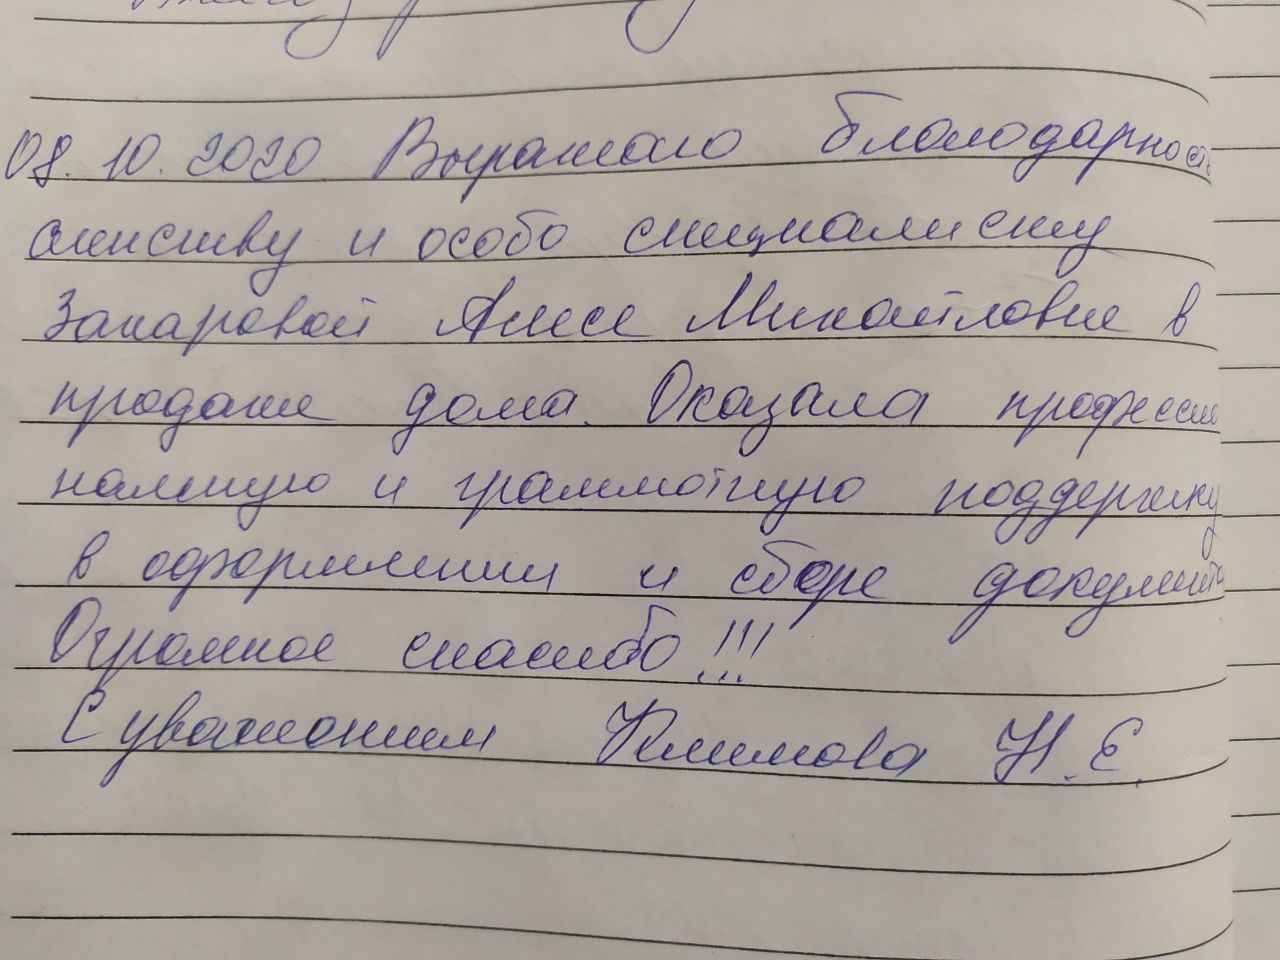 08.10.2020 Выражаю благодарность
агенству и особо специалисту
Захаровой Алисе Михайловне в
продаже дома. Оказала профессио
нальную и грамотную поддержку
в оформлении и сборе документ
Огромное спасибо!!!
С уважением Климова Н.Е.